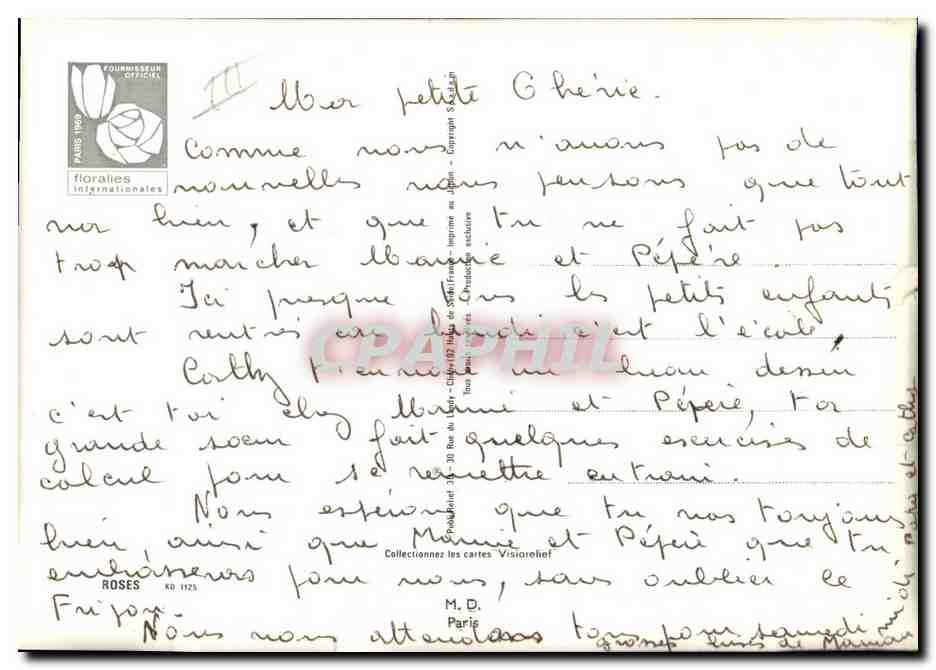 FOURNISSEUR
OFFICIEL
PARIS 1969
floralies
internationales
III
Ma petite Chérie.
Comme nous n'avons pas de
nouvelles nous pensons que tout
va bien, et que tu ne fait pas
trop marcher Mamie et Pépére.
Ici presque tous les petits enfants
sont rentrés car lundi c'est l'école,
Cathy un beau dessin
c'est toi chez Mamie et Pépère, ta
grande soeur fait quelques exercises de
calcul pour se remettre entrain.
Nous espérons que tu vas toujours
bien, ainsi que Mamie et Pépère que tu
embrasseras pour nous, sans oublier le
Frijou.
Nous nous attendons tous pour samedi midi
grosses bises de Maman
papa et Cathy
Collectionnez les cartes "Visiorelief"
ROSES KD 1125
M. D.
Paris
30 Rue du Landy - Clichy (92 Hauts de Seine) France - Imprimé au Japon - Copyright Spadem
Tous droits réservés - Production exclusive
CPAPHIL